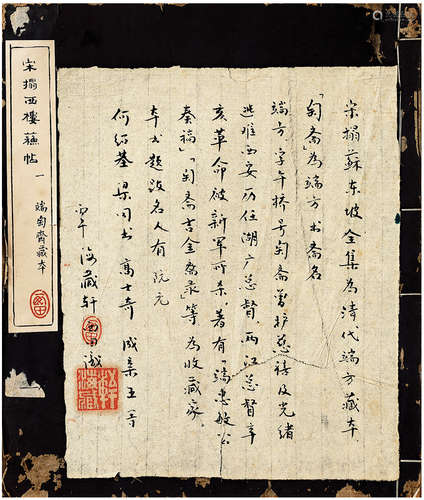 宋搨西樓蘇帖 一
端匋齋藏本
宋搨蘇东坡全集为清代端方藏本
「匋斋」为端方书斋名
端方字午桥号匋斋曾护慈禧及光绪
逃难西安历任湖广总督、两江总督辛
亥革命被新军所杀、著有「端忠敏公
奏稿」「匋斋吉金录」等为收藏家、
本书题跋名人有阮元
何绍基 梁同书 高士奇 成亲王等
海藏轩